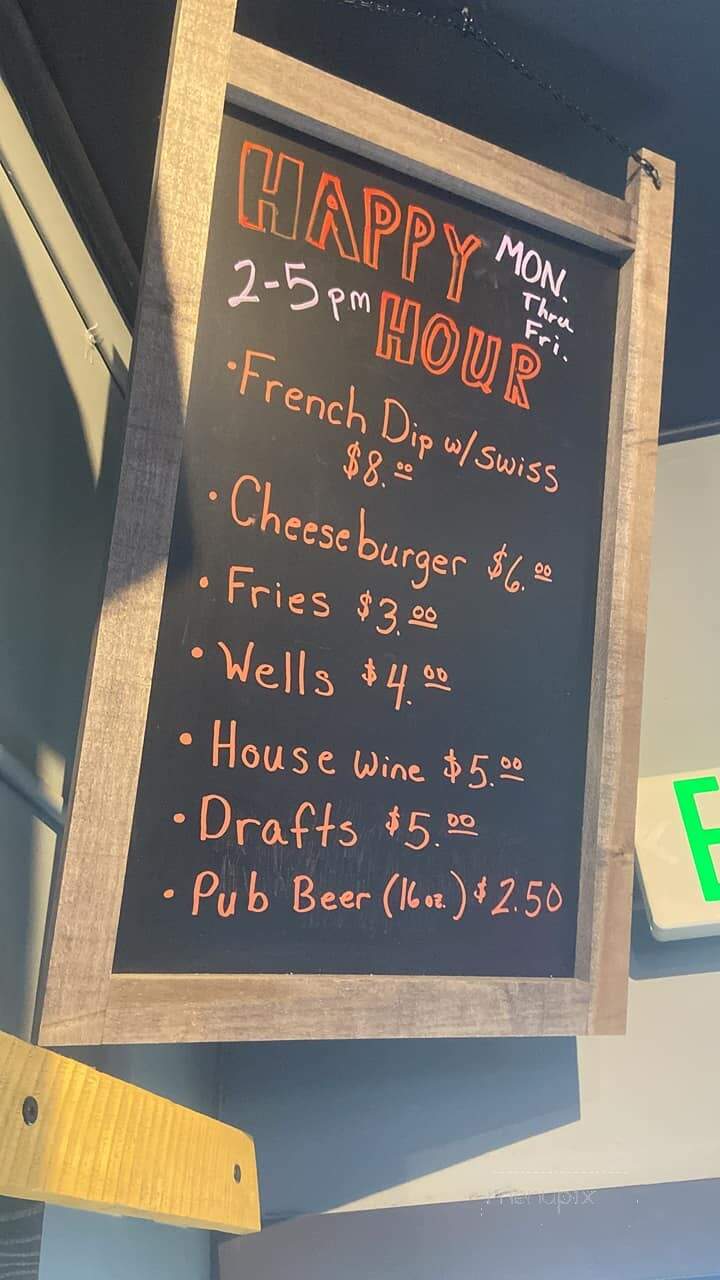 HAPPY MON.
Thru
2-5pm HOUR Fri.
•French Dip w/ swiss
$8.00
•Cheeseburger $6.00
•Fries $3.00
•Wells $4.00
•House wine $5.00
•Drafts $5.00
•Pub Beer (16oz.) $2.50
E
menupix